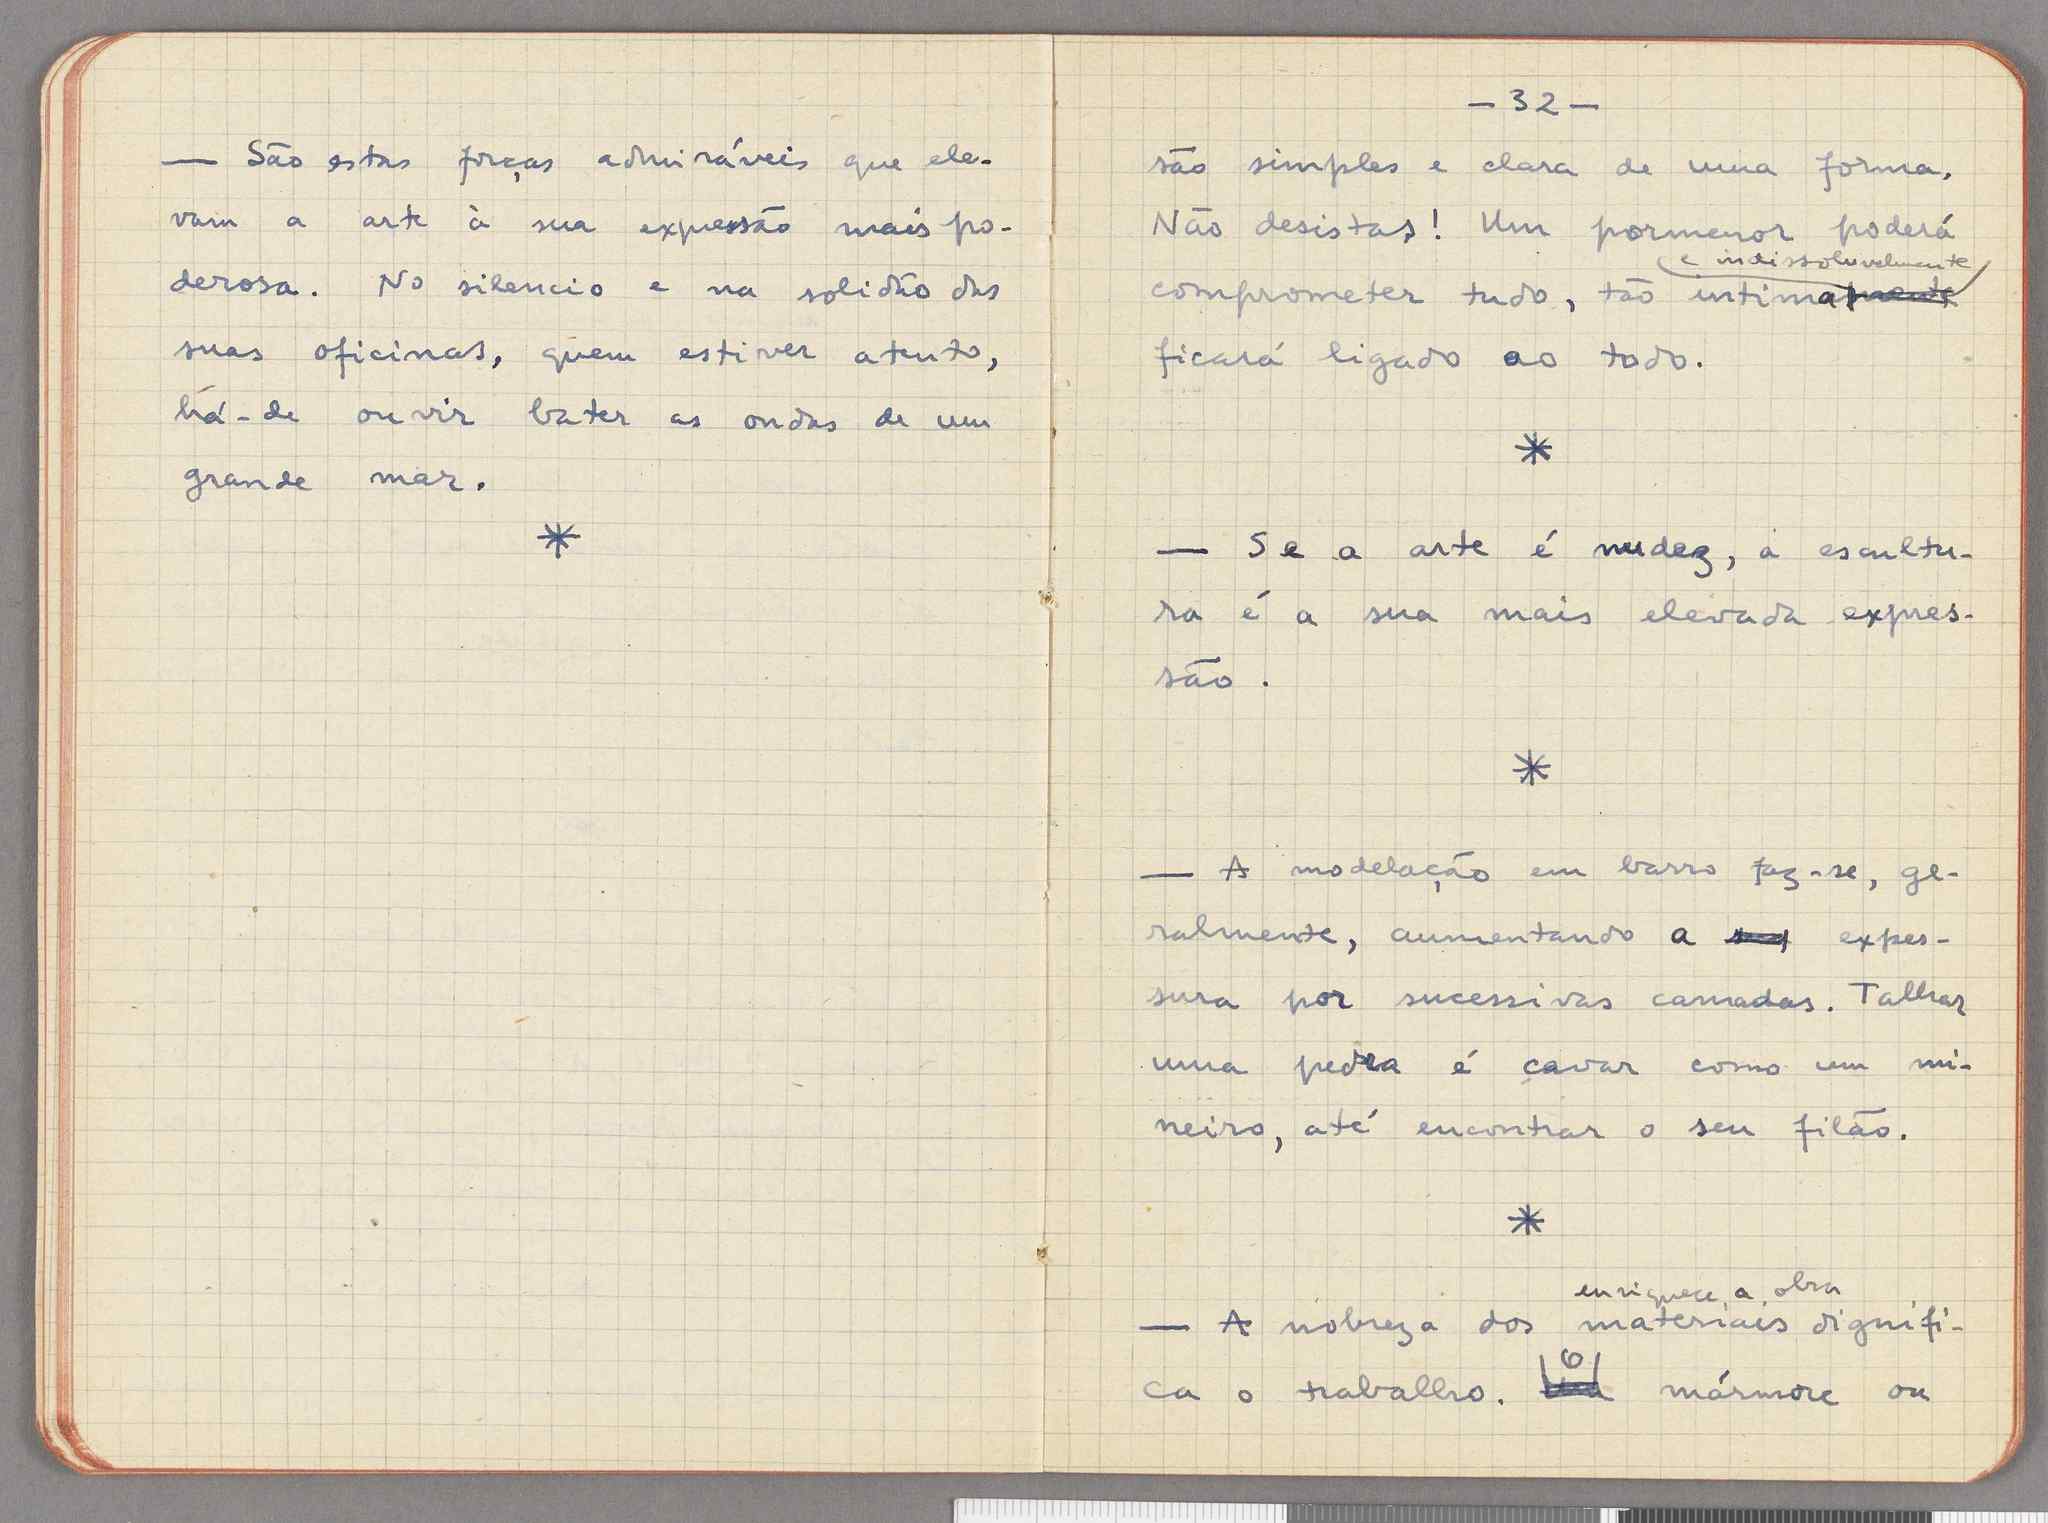 — São estas forças admiráveis que ele-
vam a arte à sua expressão mais po-
derosa. No silencio e na solidão das
suas oficinas, quem estiver atento,
há-de ouvir bater as ondas de um
grande mar.
*
— 32 —
são simples e clara de uma forma.
Não desistas! Um pormenor poderá
e indissoluvelmente
comprometer tudo, tão intimamente
ficará ligado ao todo.
*
— Se a arte é nudez, a escultu-
ra é a sua mais elevada expres-
são.
*
— A modelação em barro faz-se, ge-
ralmente, aumentando a sua expes-
sura por sucessivas camadas. Talhar
uma pedra é cavar como um mi-
neiro, até encontrar o seu filão.
*
enriquece a obra
— A nobreza dos materiais dignifi-
ca o trabalho. O mármore ou